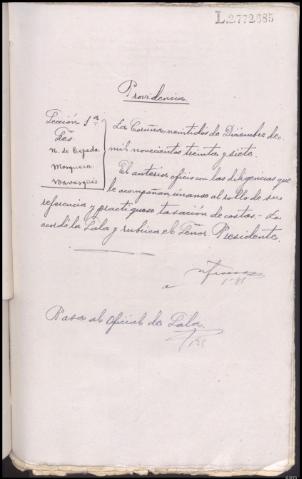 L.2772685
Providencia
Sección 1ª
Sres
N. de Cepeda
Mosquera
La Coruña veintidos de Diciembre de
mil novecientos treinta y siete.
El anterior oficio con las diligencias que
le acompañan unanse al rollo de su
referencia y practiquese tasación de costas - La
cordó la Sala y rubrica el Señor Presidente,
Pasa al Oficial de Sala.